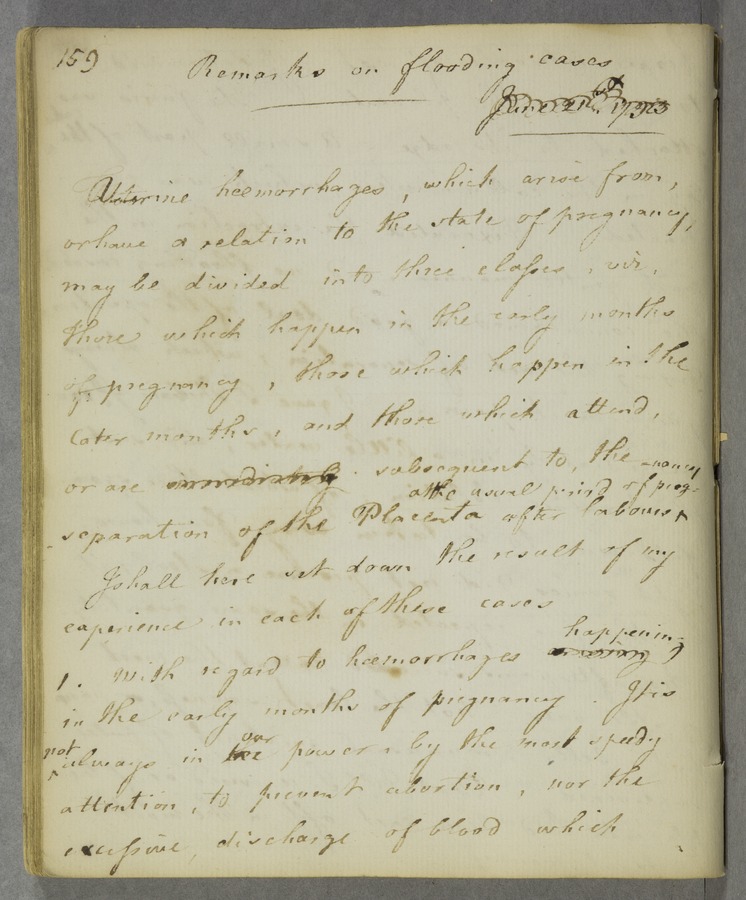 159
Remarks on flooding cases
June 21st. 1793
Uterine hœmorrhages, which arise from,
or have a relation to the state of pregnancy,
may be divided into three classes, viz,
those which happen in the early months
of pregnancy, those which happen in the
later months, and those which attend,
or are immediately subsequent to, the
separation of the Placenta after labour
at the usual period of preg-
-nancy
I shall here set down the result of my
experience in each of these cases
1. With regard to hœmorrhages happening
in the early months of pregnancy. It is
not always in our power, by the most speedy
attention, to prevent abortion, nor the
excessive, discharge of blood which